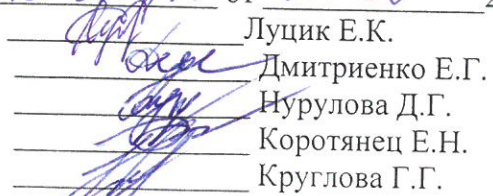 Луцик Е.К.
Дмитриенко Е.Г.
Нурулова Д.Г.
Коротянец Е.Н.
Круглова Г.Г.